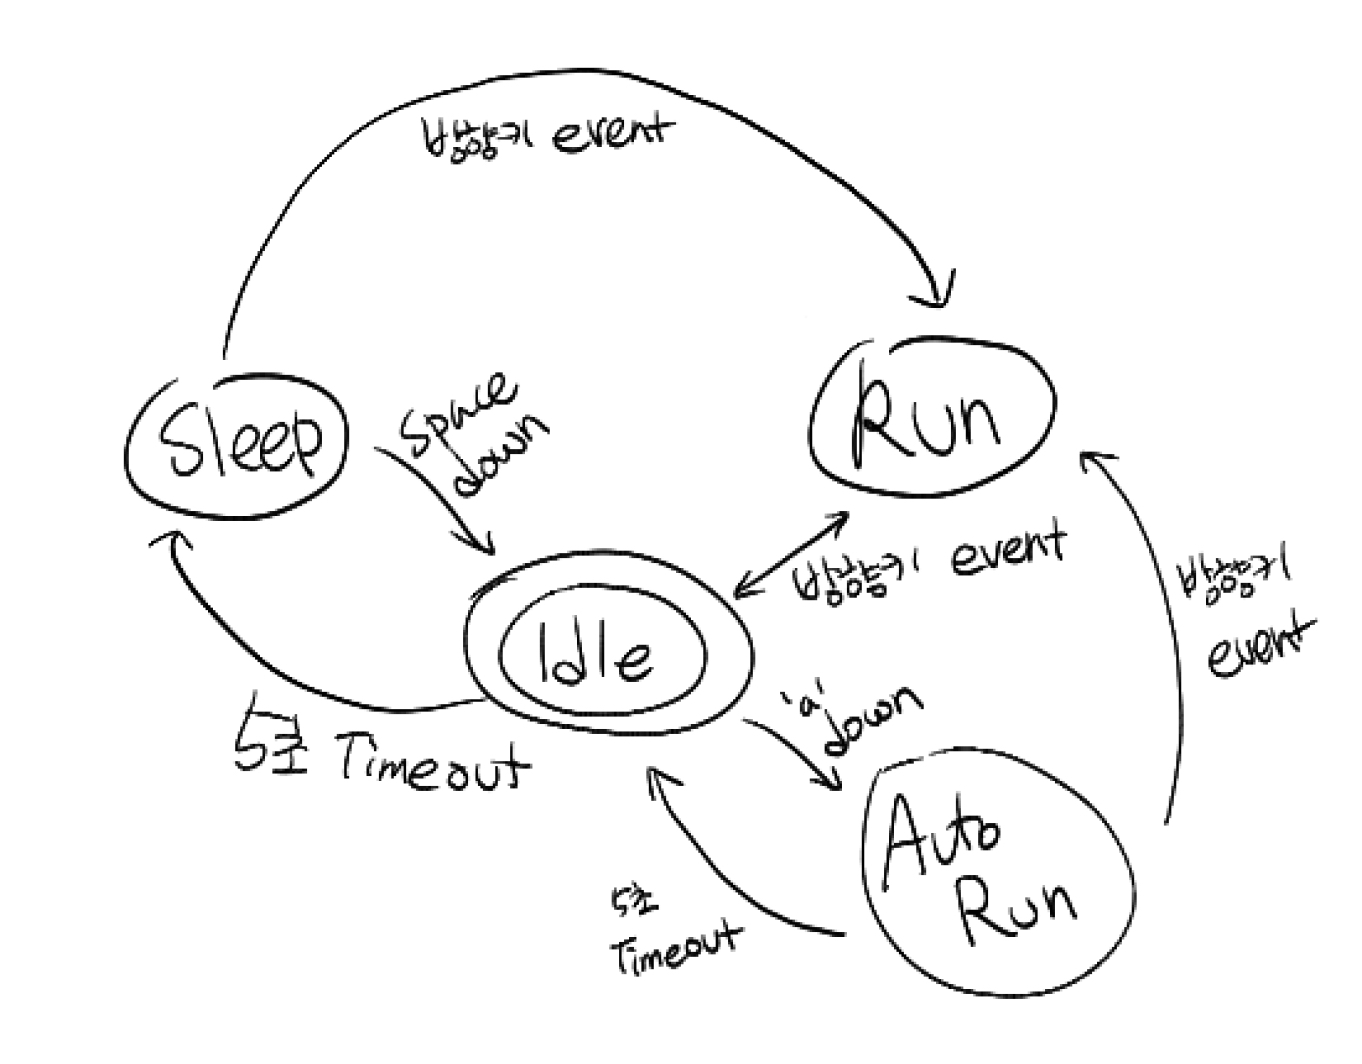 방향키 event
Sleep
Space
down
Run
방향키 event
방향키
event
Idle
'a'
down
5초 Timeout
Auto
Run
5초
Timeout